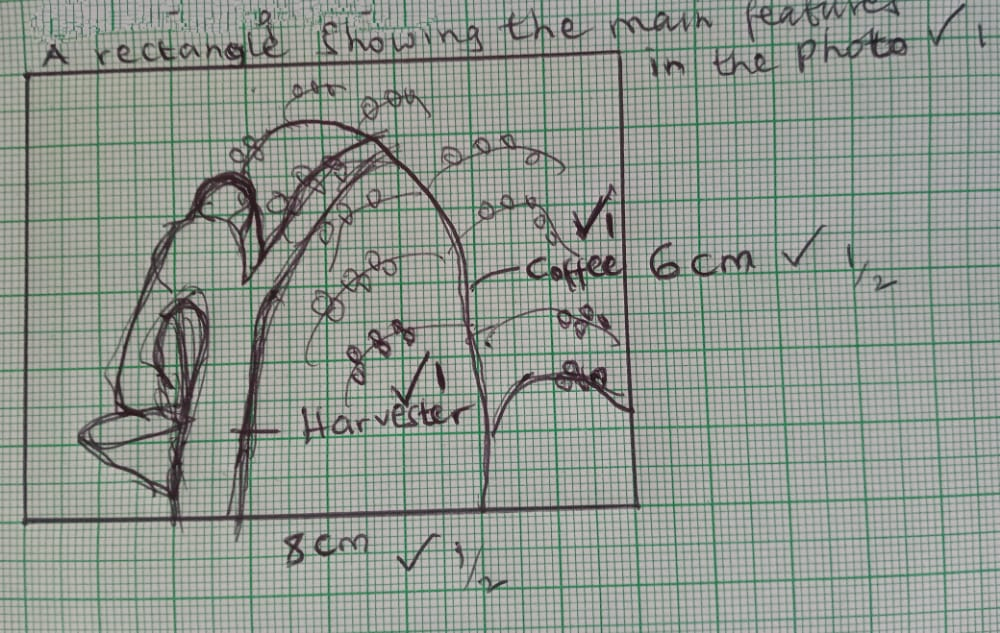 A rectangle showing the main features
in the photo ✓ 1
✓1
Coffee 6cm ✓ 1/2
✓1
Harvester
8cm ✓ 1/2